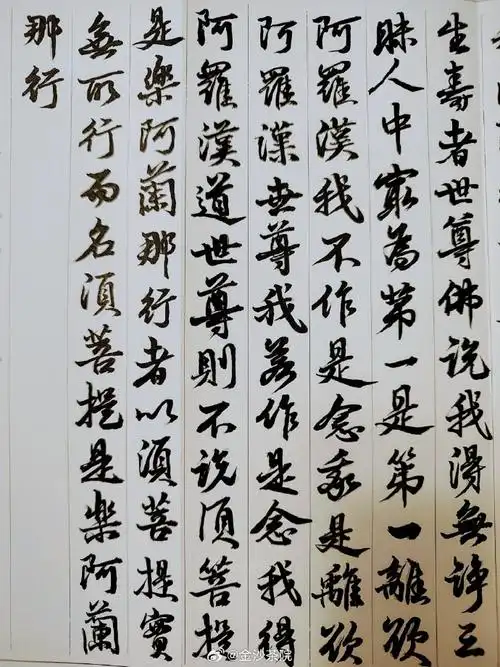 生壽者世尊佛说我得無諍三
昧人中最為第一是第一離欲
阿羅漢我不作是念我是離欲
阿羅漢世尊我若作是念我得
阿羅漢道世尊則不说須菩提
是樂阿蘭那行者以須菩提實
無所行而名須菩提是樂阿蘭
那行
@金沙茶院